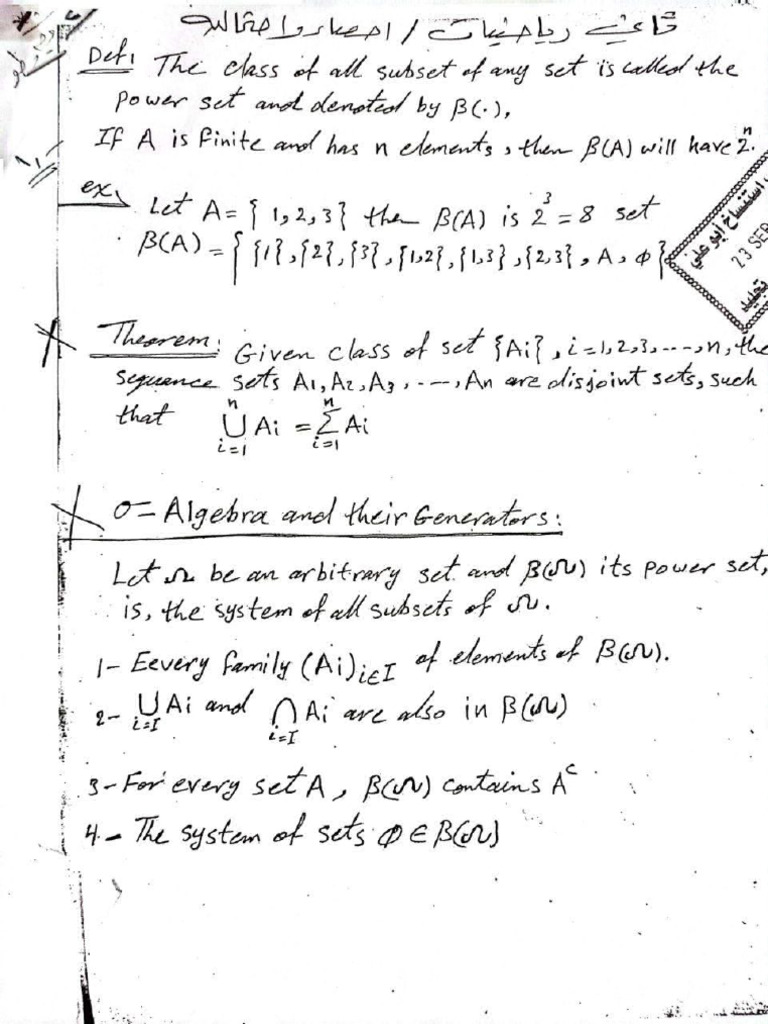 ثاني رياضيات / احصاء واحتمالية
Def, The class of all subset of any set is called the
power set and denoted by β(.),
If A is finite and has n elements, then β(A) will have 2ⁿ.
ex, Let A = { 1, 2, 3 } then β(A) is 2³ = 8 set
β(A) = { {1}, {2}, {3}, {1,2}, {1,3}, {2,3}, A, Φ }
استنساخ ابو علي
23 SEP
تجليد
Theorem: Given class of set {Ai}, i=1,2,3,----,n, the
sequance sets A1, A2, A3, ----, An are disjoint sets, such
that ⋃ⁿᵢ₌₁ Ai = Σⁿᵢ₌₁ Ai
σ= Algebra and their Generators:
Let Ω be an arbitrary set and β(Ω) its power set,
is, the system of all subsets of Ω.
1- Eevery family (Ai)i∈I of elements of β(Ω).
2- ⋃i=I Ai and ⋂i=I Ai are also in β(Ω)
3- For every set A, β(Ω) contains Aᶜ
4- The system of sets Φ ∈ β(Ω)